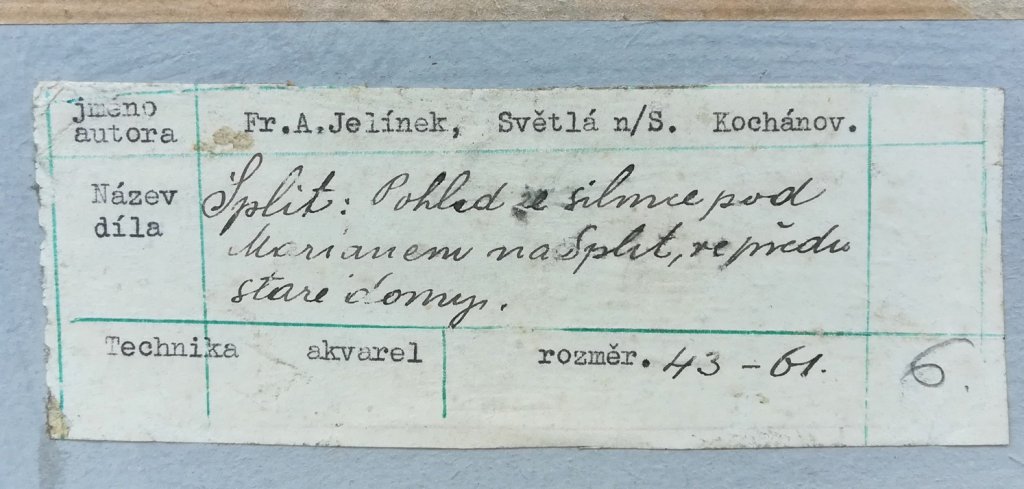 jméno
autora
Fr.A.Jelínek, Světlá n/S. Kochánov.
Název
díla
Split: Pohled ze silnice pod
Marianem na Split, vepředu
staré domy.
Technika akvarel
rozměr. 43 - 61.
6.